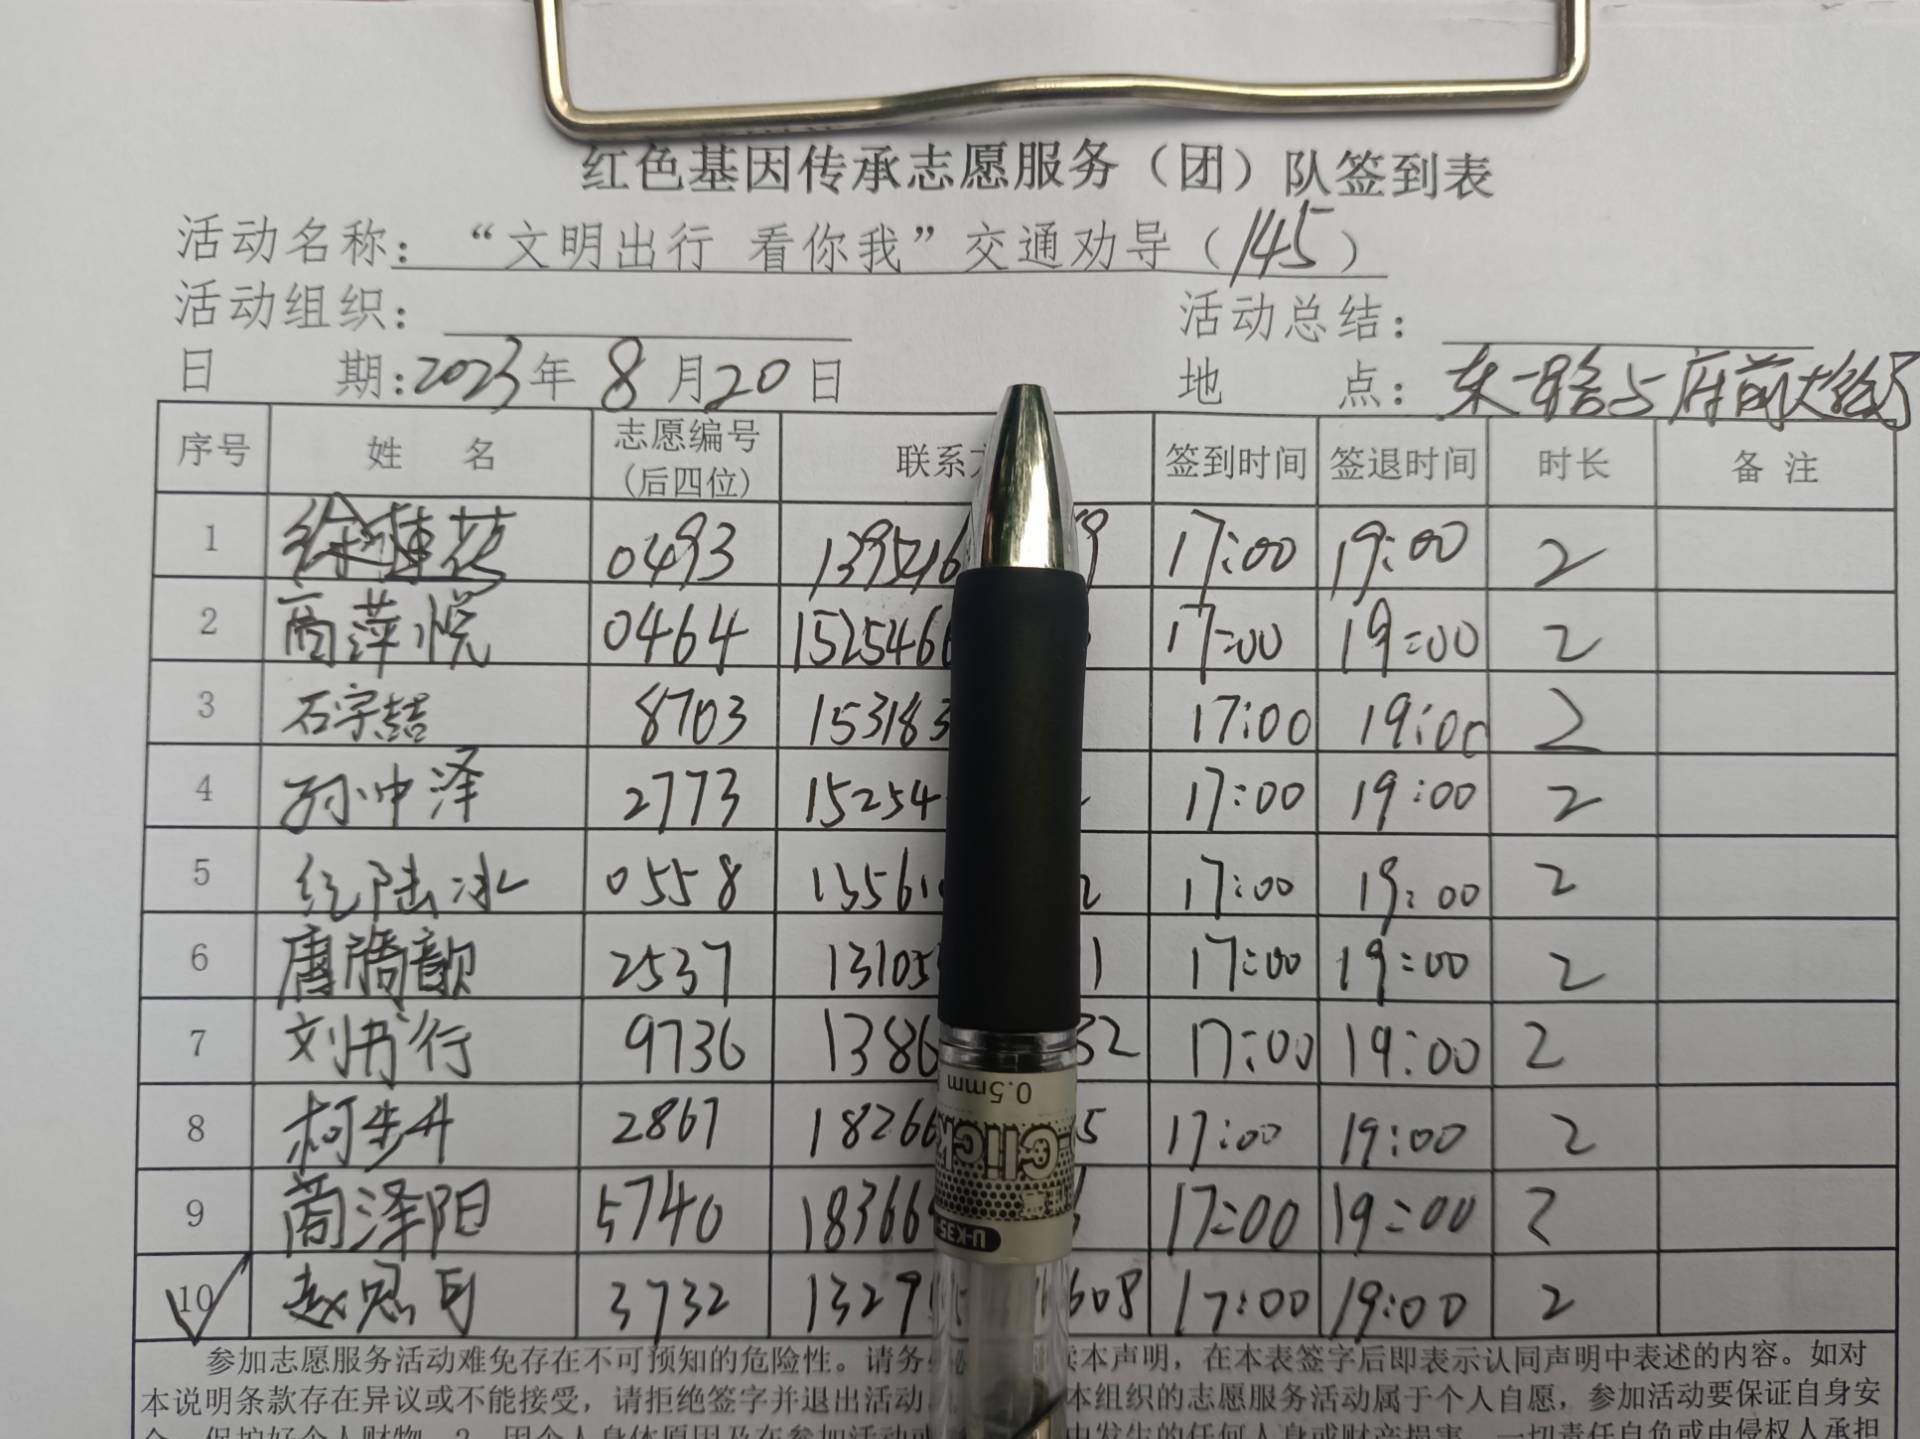 红色基因传承志愿服务（团）队签到表
活动名称：“文明出行 看你我”交通劝导（145）
活动组织： 活动总结：
日 期：2023年 8月20日 地 点：东一路与府前大街
序号 姓 名 志愿编号（后四位） 联系方 签到时间 签退时间 时长 备 注
1 徐莲花 0493 1395216 9 17:00 19:00 2
2 商萍悦 0464 1525466 17:00 19:00 2
3 石宇喆 8703 153183 17:00 19:00 2
4 孙冲泽 2773 15254 17:00 19:00 2
5 纪陆冰 0558 13561 2 17:00 19:00 2
6 唐 歆 2537 13105 1 17:00 19:00 2
7 刘书行 9736 1386 32 17:00 19:00 2
8 柯步升 2867 18266 5 17:00 19:00 2
9 商泽阳 5740 18366 17:00 19:00 2
10 赵思 3732 1329 608 17:00 19:00 2
0.5mm
Click
U-K35
参加志愿服务活动难免存在不可预知的危险性。请务必 读本声明，在本表签字后即表示认同声明中表述的内容。如对
本说明条款存在异议或不能接受，请拒绝签字并退出活动 本组织的志愿服务活动属于个人自愿，参加活动要保证自身安
全，保护好个人财物。2、因个人身体原因及在参加活动 中发生的任何人身或财产损害，一切责任自负或由侵权人承担